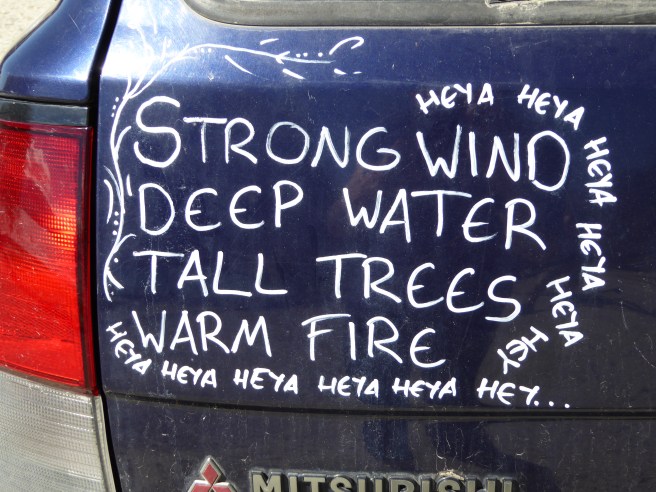 STRONG WIND
DEEP WATER
TALL TREES
WARM FIRE
HEYA HEYA HEYA HEYA HEYA HEY
HEYA HEYA HEYA HEYA HEYA HEY...
MITSUBISHI